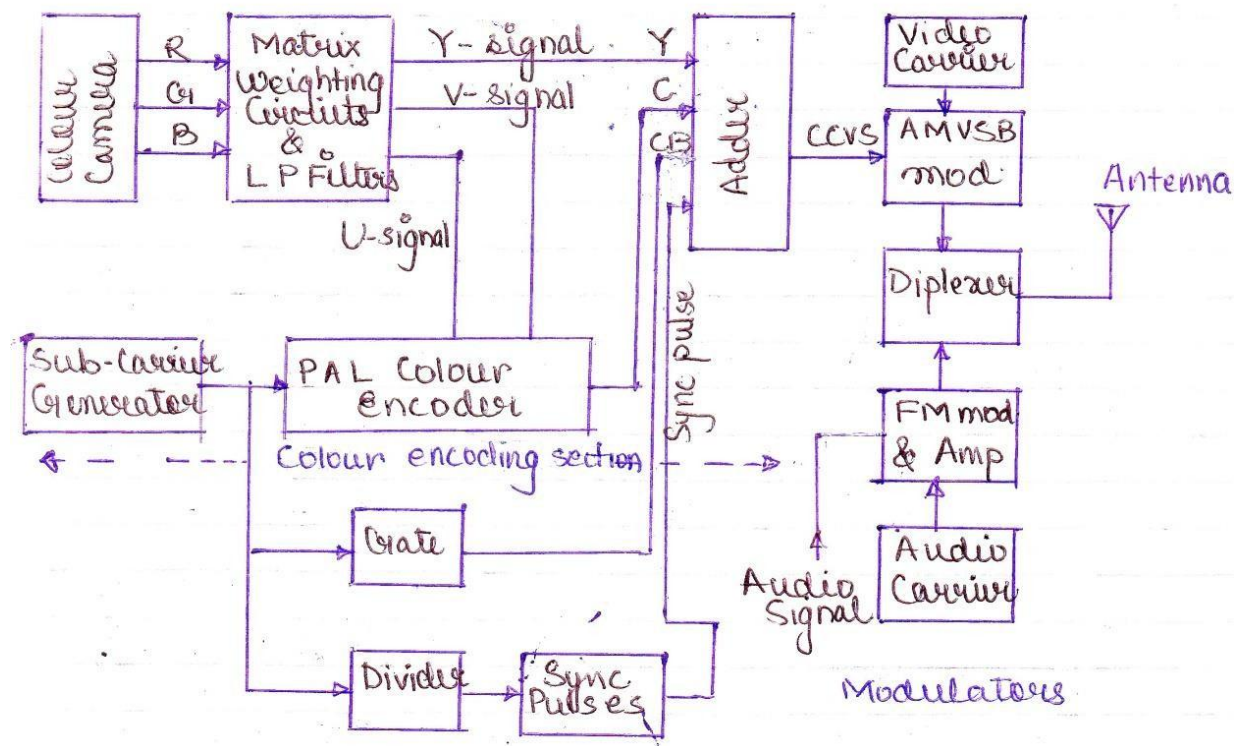 Colour
Camera
R
G
B
Matrix
Weighting
Circiuts
&
LP Filters
Y-signal
V-signal
U-signal
Y
C
CB
Sync pulse
Adder
CCVS
Video
Carrier
AMVSB
mod.
Antenna
Diplexer
Sub-Carrier
Generator
PAL Colour
encoder
Colour encoding section
FM mod
& Amp
Gate
Audio
Signal
Audio
Carrier
Divider
Sync
Pulses
Modulators